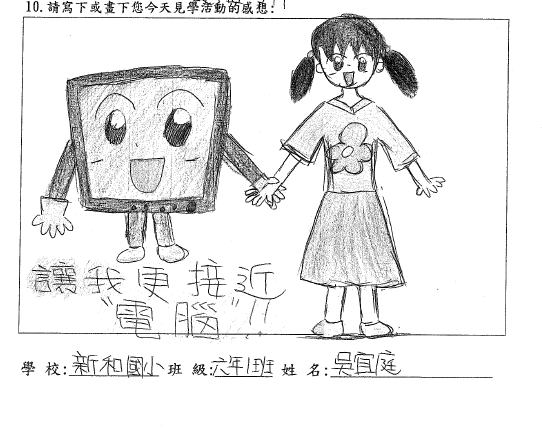 10. 請寫下或畫下您今天見學活動的感想:
讓我更接近
"電腦"!!
學 校: 新和國小 班 級: 六年1班 姓 名: 吳宜庭